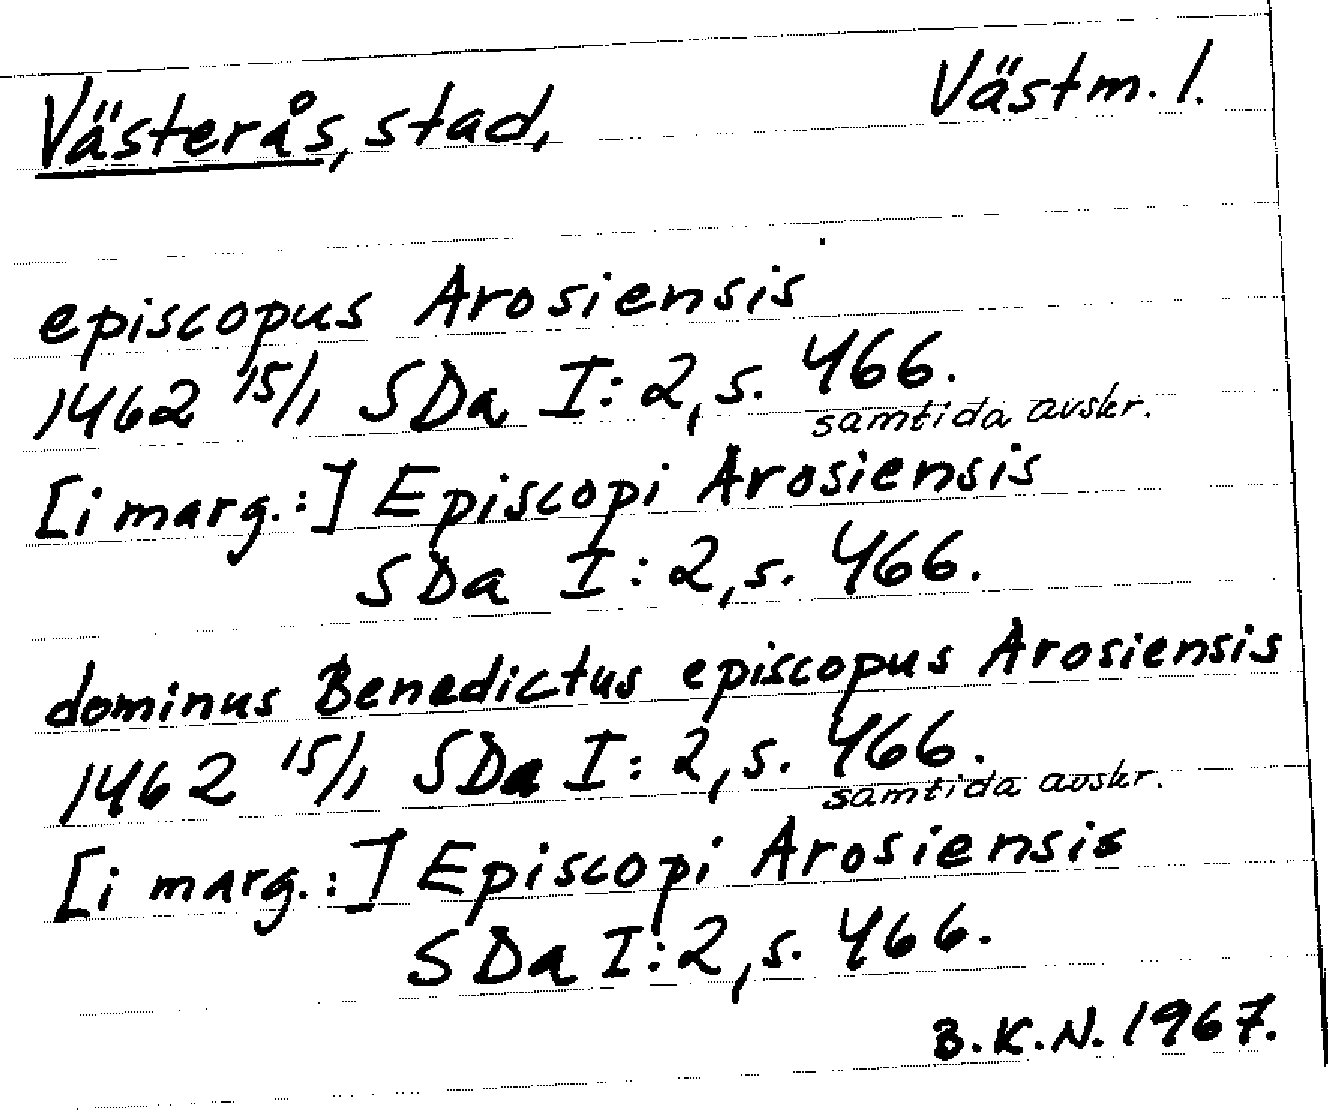 Västerås, stad, Västm. l.
episcopus Arosiensis
1462 15/1 SDa I:2, s. 466.
samtida avskr.
[i marg.:] Episcopi Arosiensis
SDa I:2, s. 466.
dominus Benedictus episcopus Arosiensis
1462 15/1 SDa I:2, s. 466.
samtida avskr.
[i marg.:] Episcopi Arosiensis
SDa I:2, s. 466.
B.K.N. 1967.